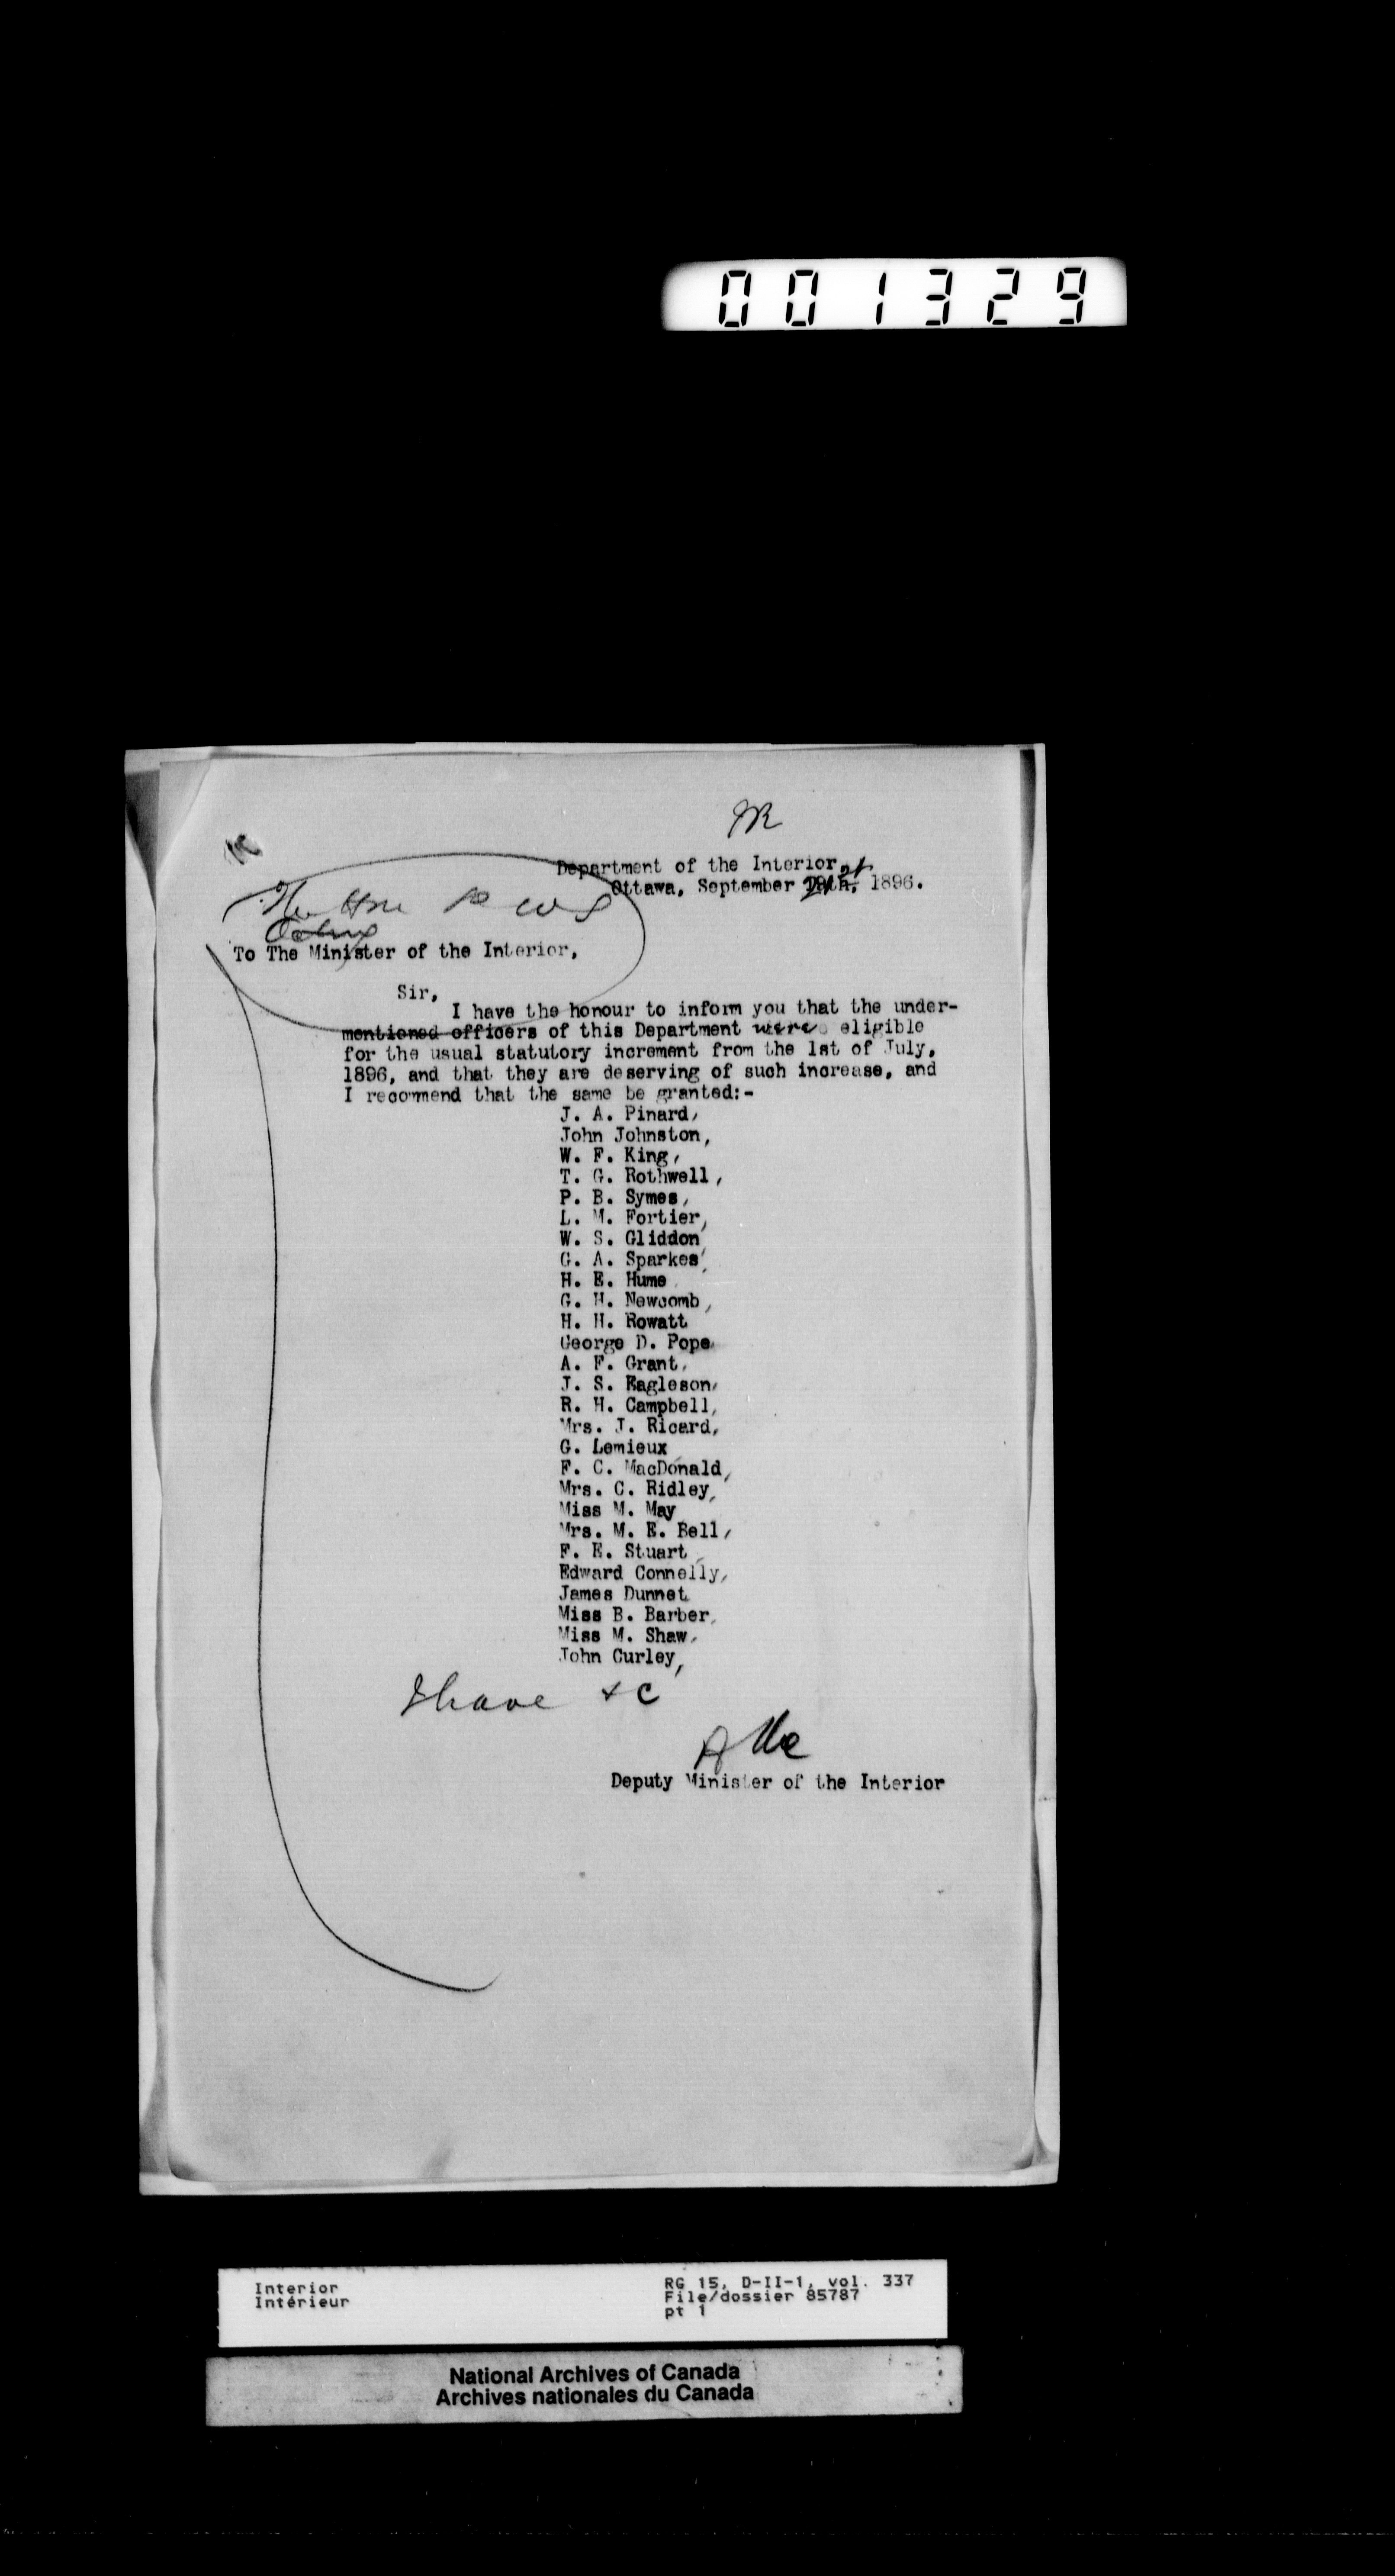 001329
Department of the Interior,
Ottawa, September 21st, 1896.
The Hon R W S
Acting
To The Minister of the Interior,
Sir,
I have the honour to inform you that the under-
mentioned officers of this Department were eligible
for the usual statutory increment from the 1st of July,
1896, and that they are deserving of such increase, and
I recommend that the same be granted:-
J. A. Pinard,
John Johnston,
W. F. King,
T. G. Rothwell,
P. B. Symes,
L. M. Fortier,
W. S. Gliddon
G. A. Sparkes,
H. E. Hume
G. H. Newcomb,
H. H. Rowatt
George D. Pope
A. F. Grant,
J. S. Eagleson,
R. H. Campbell,
Mrs. J. Ricard,
G. Lemieux
F. C. MacDonald,
Mrs. C. Ridley,
Miss M. May
Mrs. M. E. Bell,
F. E. Stuart
Edward Connelly,
James Dunnet
Miss B. Barber,
Miss M. Shaw,
John Curley,
I have &c
Deputy Minister of the Interior
Interior
Intérieur
RG 15, D-II-1, vol. 337
File/dossier 85787
pt 1
National Archives of Canada
Archives nationales du Canada